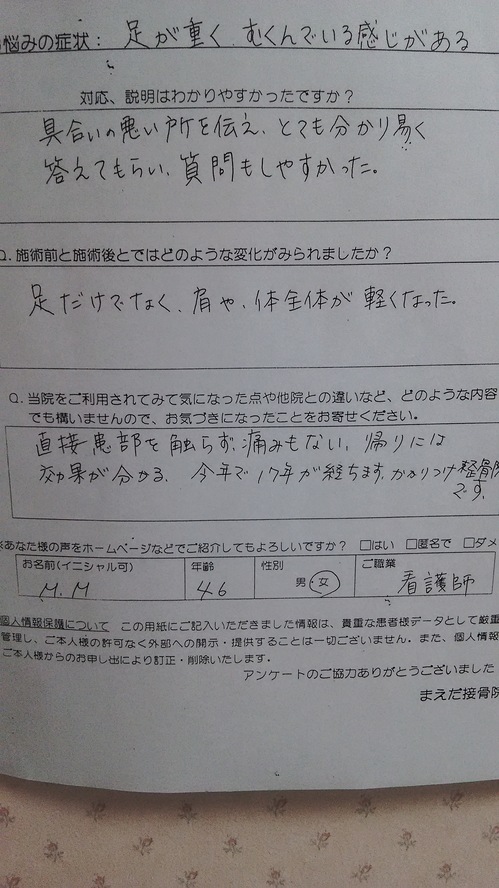 悩みの症状： 足が重く、むくんでいる感じがある
対応、説明はわかりやすかったですか？
具合いの悪い所を伝え、とても分かり易く
答えてもらい、質問もしやすかった。
Q. 施術前と施術後とではどのような変化がみられましたか？
足だけでなく、肩や、体全体が軽くなった。
Q. 当院をご利用されてみて気になった点や他院との違いなど、どのような内容
でも構いませんので、お気づきになったことをお寄せください。
直接患部を触らず、痛みもない、帰りには
効果が分かる、 今年で17年が経ちます。かかりつけ整骨院
です。
※あなた様の声をホームページなどでご紹介してもよろしいですか？ □はい □匿名で □ダメ
お名前(イニシャル可) 年齢 性別 ご職業
M.M 46 男 女 看護師
個人情報保護について この用紙にご記入いただきました情報は、貴重な患者様データとして厳重
管理し、ご本人様の許可なく外部への開示・提供することは一切ございません。また、個人情報
ご本人様からのお申し出により訂正・削除いたします。
アンケートのご協力ありがとうございました
まえだ接骨院